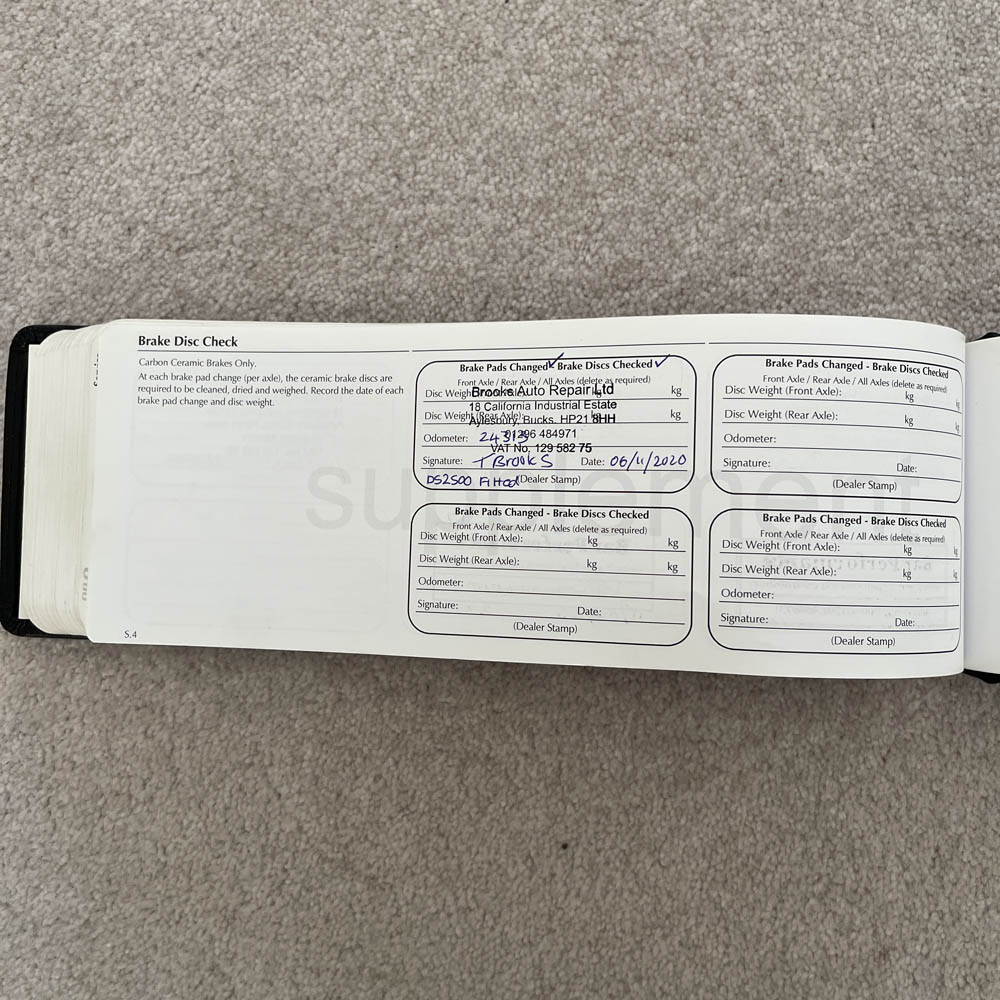 Brake Disc Check
Carbon Ceramic Brakes Only.
At each brake pad change (per axle), the ceramic brake discs are
required to be cleaned, dried and weighed. Record the date of each
brake pad change and disc weight.
Brake Pads Changed✓ Brake Discs Checked ✓
Front Axle / Rear Axle / All Axles (delete as required)
Disc Weight (Front Axle): kg kg
Brooke Auto Repair Ltd
18 California Industrial Estate
Disc Weight (Rear Axle): kg
Aylesbury, Bucks. HP21 8HH
01296 484971
Odometer: 24313
VAT No. 129 582 75
Signature: T Brooks Date: 06/11/2020
DS2500 Fitted (Dealer Stamp)
Brake Pads Changed - Brake Discs Checked
Front Axle / Rear Axle / All Axles (delete as required)
Disc Weight (Front Axle): kg kg
Disc Weight (Rear Axle): kg kg
Odometer:
Signature: Date:
(Dealer Stamp)
Brake Pads Changed - Brake Discs Checked
Front Axle / Rear Axle / All Axles (delete as required)
Disc Weight (Front Axle): kg kg
Disc Weight (Rear Axle): kg kg
Odometer:
Signature: Date:
(Dealer Stamp)
Brake Pads Changed - Brake Discs Checked
Front Axle / Rear Axle / All Axles (delete as required)
Disc Weight (Front Axle): kg kg
Disc Weight (Rear Axle): kg kg
Odometer:
Signature: Date:
(Dealer Stamp)
supplement
S.4